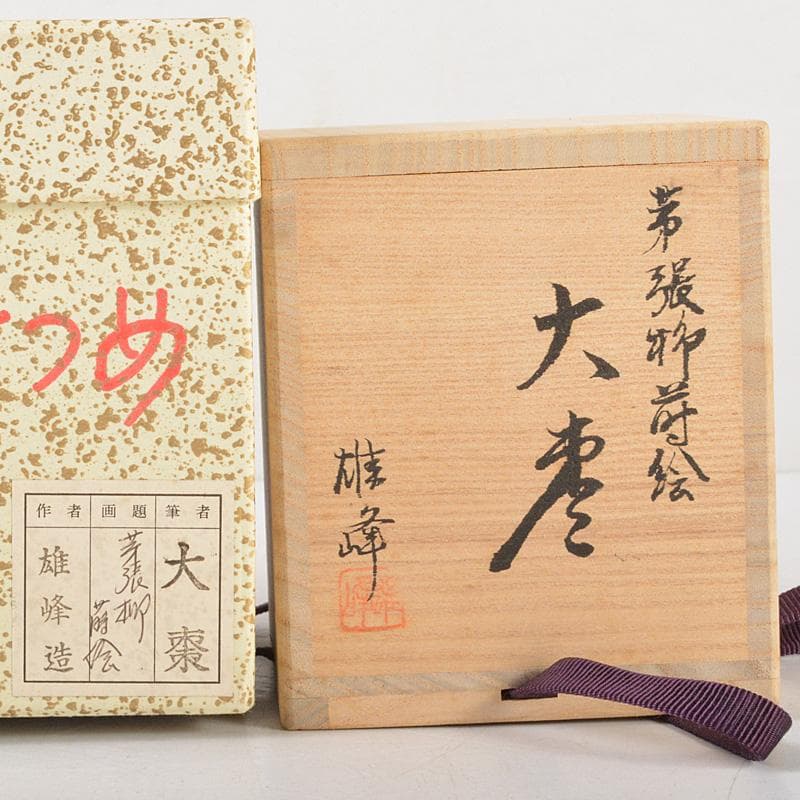 つめ
筆者
画題
作者
大棗
芽張柳
蒔絵
雄峰造
芽張柳蒔絵
大棗
雄峰